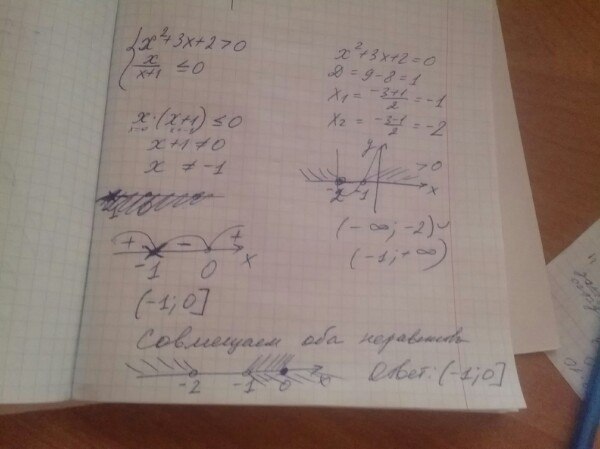 x²+3x+2>0
x/(x+1) ≤0
x·(x+1) ≤0
x=0 x=-1
x+1≠0
x ≠ -1
+ - +
-1 0 x
(-1;0]
x²+3x+2=0
D=9-8=1
x₁ = (-3+1)/2 = -1
x₂ = (-3-1)/2 = -2
y
>0
-2 -1 x
(-∞;-2)∪
(-1;+∞)
Совмещаем оба неравенства
-2 -1 0 x
Ответ: (-1;0]